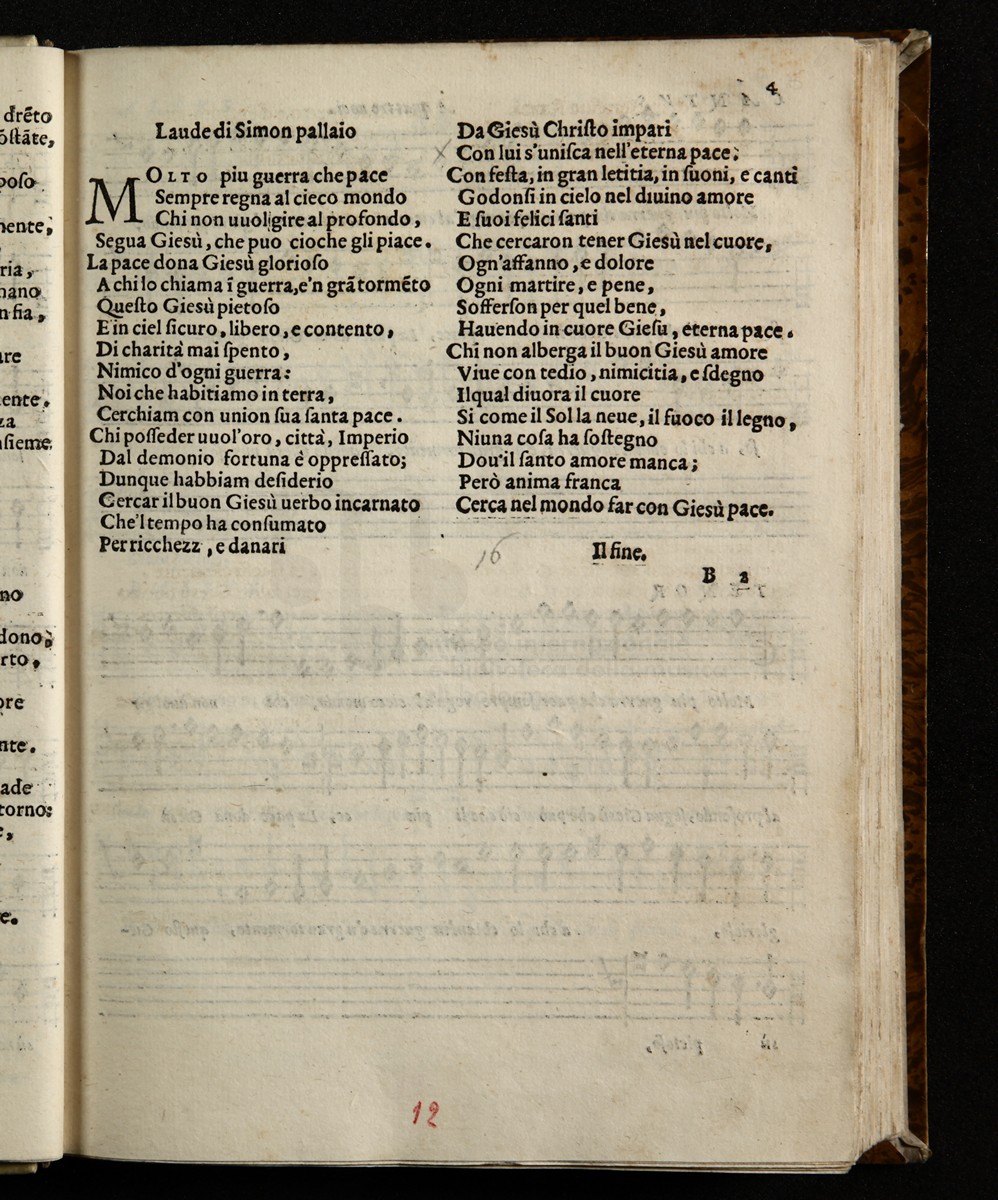 drẽto
õſtãte,
poſo
nente;
ria,
nano
n fia,
ire
ente.
za
ſieme
no
dono;
rto,
ore
nte.
ade
torno:
e,
e.
4
Laude di Simon pallaio
MOLTO piu guerra che pace
Sempre regna al cieco mondo
Chi non uuol gire al profondo,
Segua Gieſù, che puo cioche gli piace.
La pace dona Gieſù glorioſo
A chi lo chiama ĩ guerra, e'n grã tormẽto
Queſto Gieſù pietoſo
E in ciel ſicuro, libero, e contento,
Di charità mai ſpento,
Nimico d'ogni guerra:
Noi che habitiamo in terra,
Cerchiam con union ſua ſanta pace.
Chi poſſeder uuol'oro, città, Imperio
Dal demonio fortuna è oppreſſato;
Dunque habbiam deſiderio
Cercar il buon Gieſù uerbo incarnato
Che'l tempo ha conſumato
Per ricchezz , e danari
Da Gieſù Chriſto impari
Con lui s'uniſca nell'eterna pace;
Con feſta, in gran letitia, in ſuoni, e canti
Godonſi in cielo nel diuino amore
E ſuoi felici ſanti
Che cercaron tener Gieſù nel cuore,
Ogn'affanno, e dolore
Ogni martire, e pene,
Sofferſon per quel bene,
Hauendo in cuore Gieſu, eterna pace.
Chi non alberga il buon Gieſù amore
Viue con tedio, nimicitia, e ſdegno
Ilqual diuora il cuore
Si come il Sol la neue, il fuoco il legno,
Niuna coſa ha ſoſtegno
Dou'il ſanto amore manca;
Però anima franca
Cerca nel mondo far con Gieſù pace.
16
Il fine.
B 2
12